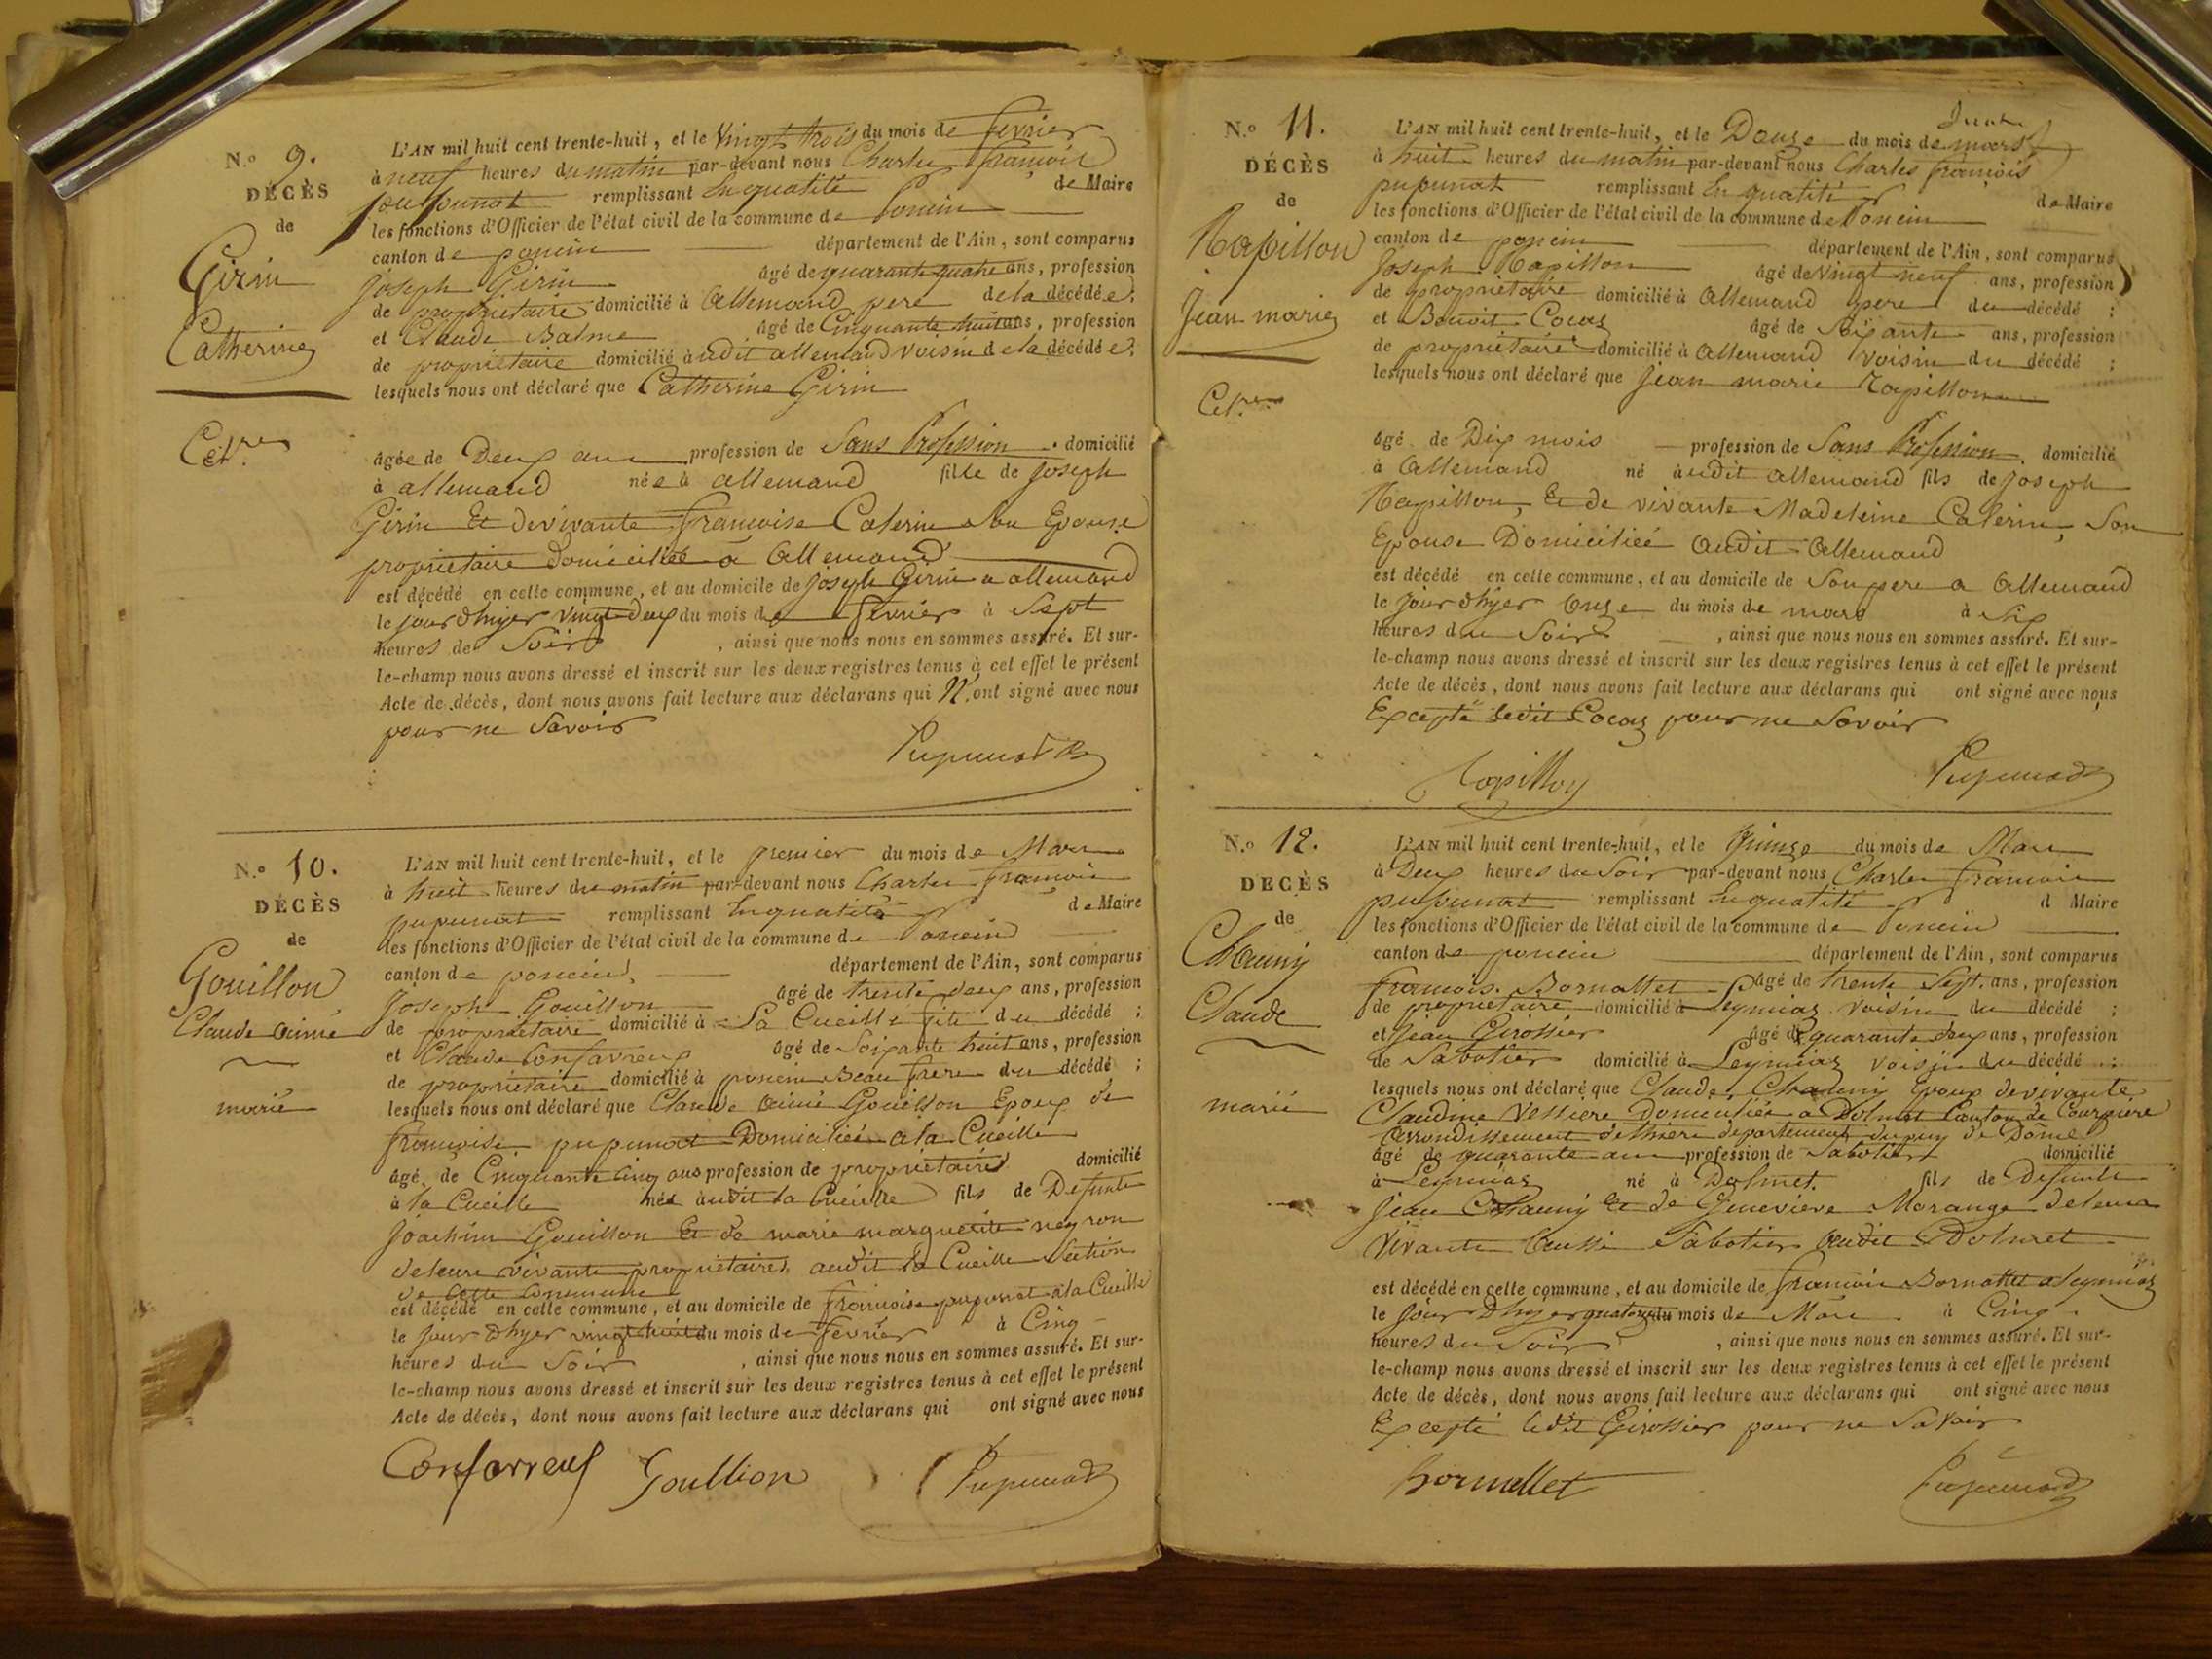 N.º 9.
DÉCÈS
de
Girin
Catherine
Cél.re
L'AN mil huit cent trente-huit, et le Vingt trois du mois de fevrier
à neuf heures du matin par-devant nous Charles françois
pupunat remplissant En qualité de Maire
les fonctions d'Officier de l'état civil de la commune de Poncin
canton de poncin département de l'Ain, sont comparus
joseph Girin âgé de quarante quatre ans, profession
de propriétaire domicilié à Allemand pere de la décédée;
et Claude Balme âgé de Cinquante huit ans, profession
de propriétaire domicilié à udit allemand Voisin de la décédée;
lesquels nous ont déclaré que Catherine Girin
âgée de Deux ans profession de Sans Profession domicilié
à allemand née à allemand fille de joseph
Girin Et de vivante françoise Caterin Son Epouse
propriétaire Domiciliée a Allemand
est décédé en cette commune, et au domicile de joseph Girin a allemand
le jour d'hyer vingt Deux du mois de fevrier à Sept
heures de Soir, ainsi que nous nous en sommes assuré. Et sur-
le-champ nous avons dressé et inscrit sur les deux registres tenus à cet effet le présent
Acte de décès, dont nous avons fait lecture aux déclarans qui N'ont signé avec nous
pour ne Savoir
Pupunat
N.º 10.
DÉCÈS
de
Gouillon
Claude aimé
marié
L'AN mil huit cent trente-huit, et le premier du mois de Mars
à huit heures du matin par-devant nous Charles françois
pupunat remplissant En qualité de Maire
les fonctions d'Officier de l'état civil de la commune de Poncin
canton de poncin département de l'Ain, sont comparus
Joseph Gouillon âgé de trente deux ans, profession
de propriétaire domicilié à La Cueille fils du décédé;
et Claude Confavreux âgé de Soixante huit ans, profession
de propriétaire domicilié à poncin Beau frere du décédé;
lesquels nous ont déclaré que Claude aimé Gouillon Epoux de
françoise pupunat Domiciliée a la Cueille
âgé de Cinquante Cinq ans profession de propriétaire domicilié
à la Cueille né audit la Cueille fils de Defunts
Joachim Gouillon Et de marie marguerite neyron
de leur vivante propriétaires audit la Cueille Section
de Cette Commune
est décédé en cette commune, et au domicile de françoise pupunat a la Cueille
le jour d'hyer vingt huit du mois de fevrier à Cinq
heures du Soir, ainsi que nous nous en sommes assuré. Et sur-
le-champ nous avons dressé et inscrit sur les deux registres tenus à cet effet le présent
Acte de décès, dont nous avons fait lecture aux déclarans qui ont signé avec nous
Confavreux Goullion Pupunat
N.º 11.
DÉCÈS
de
Rapillon
Jean marie
Cél.re
L'AN mil huit cent trente-huit, et le Douze du mois de mars
à huit heures du matin par-devant nous Charles françois
pupunat remplissant En qualité de Maire
les fonctions d'Officier de l'état civil de la commune de Poncin
canton de poncin département de l'Ain, sont comparus
Joseph Rapillon âgé de vingt neuf ans, profession
de propriétaire domicilié à Allemand pere du décédé;
et Benoit Cocaz âgé de Soixante ans, profession
de propriétaire domicilié à Allemand Voisin du décédé;
lesquels nous ont déclaré que Jean marie Rapillon
âgé de Dix mois profession de Sans Profession domicilié
à Allemand né audit allemand fils de Joseph
Rapillon, Et de vivante Madeleine Caterin, Son
Epouse Domiciliée Audit Allemand
est décédé en cette commune, et au domicile de Son pere a Allemand
le jour d'hyer Onze du mois de mars à Six
heures du Soir, ainsi que nous nous en sommes assuré. Et sur-
le-champ nous avons dressé et inscrit sur les deux registres tenus à cet effet le présent
Acte de décès, dont nous avons fait lecture aux déclarans qui ont signé avec nous
Excepté ledit Cocaz pour ne Savoir
Rapillon Pupunat
N.º 12.
DÉCÈS
de
Chauny
Claude
marié
L'AN mil huit cent trente-huit, et le Quinze du mois de Mars
à Deux heures du Soir par-devant nous Charles françois
pupunat remplissant En qualité d Maire
les fonctions d'Officier de l'état civil de la commune de Poncin
canton de poncin département de l'Ain, sont comparus
françois Bornattet âgé de trente Sept ans, profession
de propriétaire domicilié à Leymiaz Voisin du décédé;
et Jean Girossier âgé de quarante deux ans, profession
de Sabotier domicilié à Leymiaz Voisin du décédé;
lesquels nous ont déclaré que Claude Chauny Epoux de vivante
Claudine Vessiere Domiciliée a Dolmet Canton de Courpiere
Arrondissement de thiers departement du puy de Dôme
âgé de quarante ans profession de Sabotier domicilié
à Leymiaz né à Dolmet fils de Defunts
Jean Chauny Et de Geneviève Morange de leur
Vivante Aussi Sabotier Audit Dolmet
est décédé en cette commune, et au domicile de françois Bornattet a Leymiaz
le jour D'hyer quatorze du mois de Mars à Cinq
heures du Soir, ainsi que nous nous en sommes assuré. Et sur-
le-champ nous avons dressé et inscrit sur les deux registres tenus à cet effet le présent
Acte de décès, dont nous avons fait lecture aux déclarans qui ont signé avec nous
Excepté ledit Girossier pour ne Savoir
Bornattet Pupunat